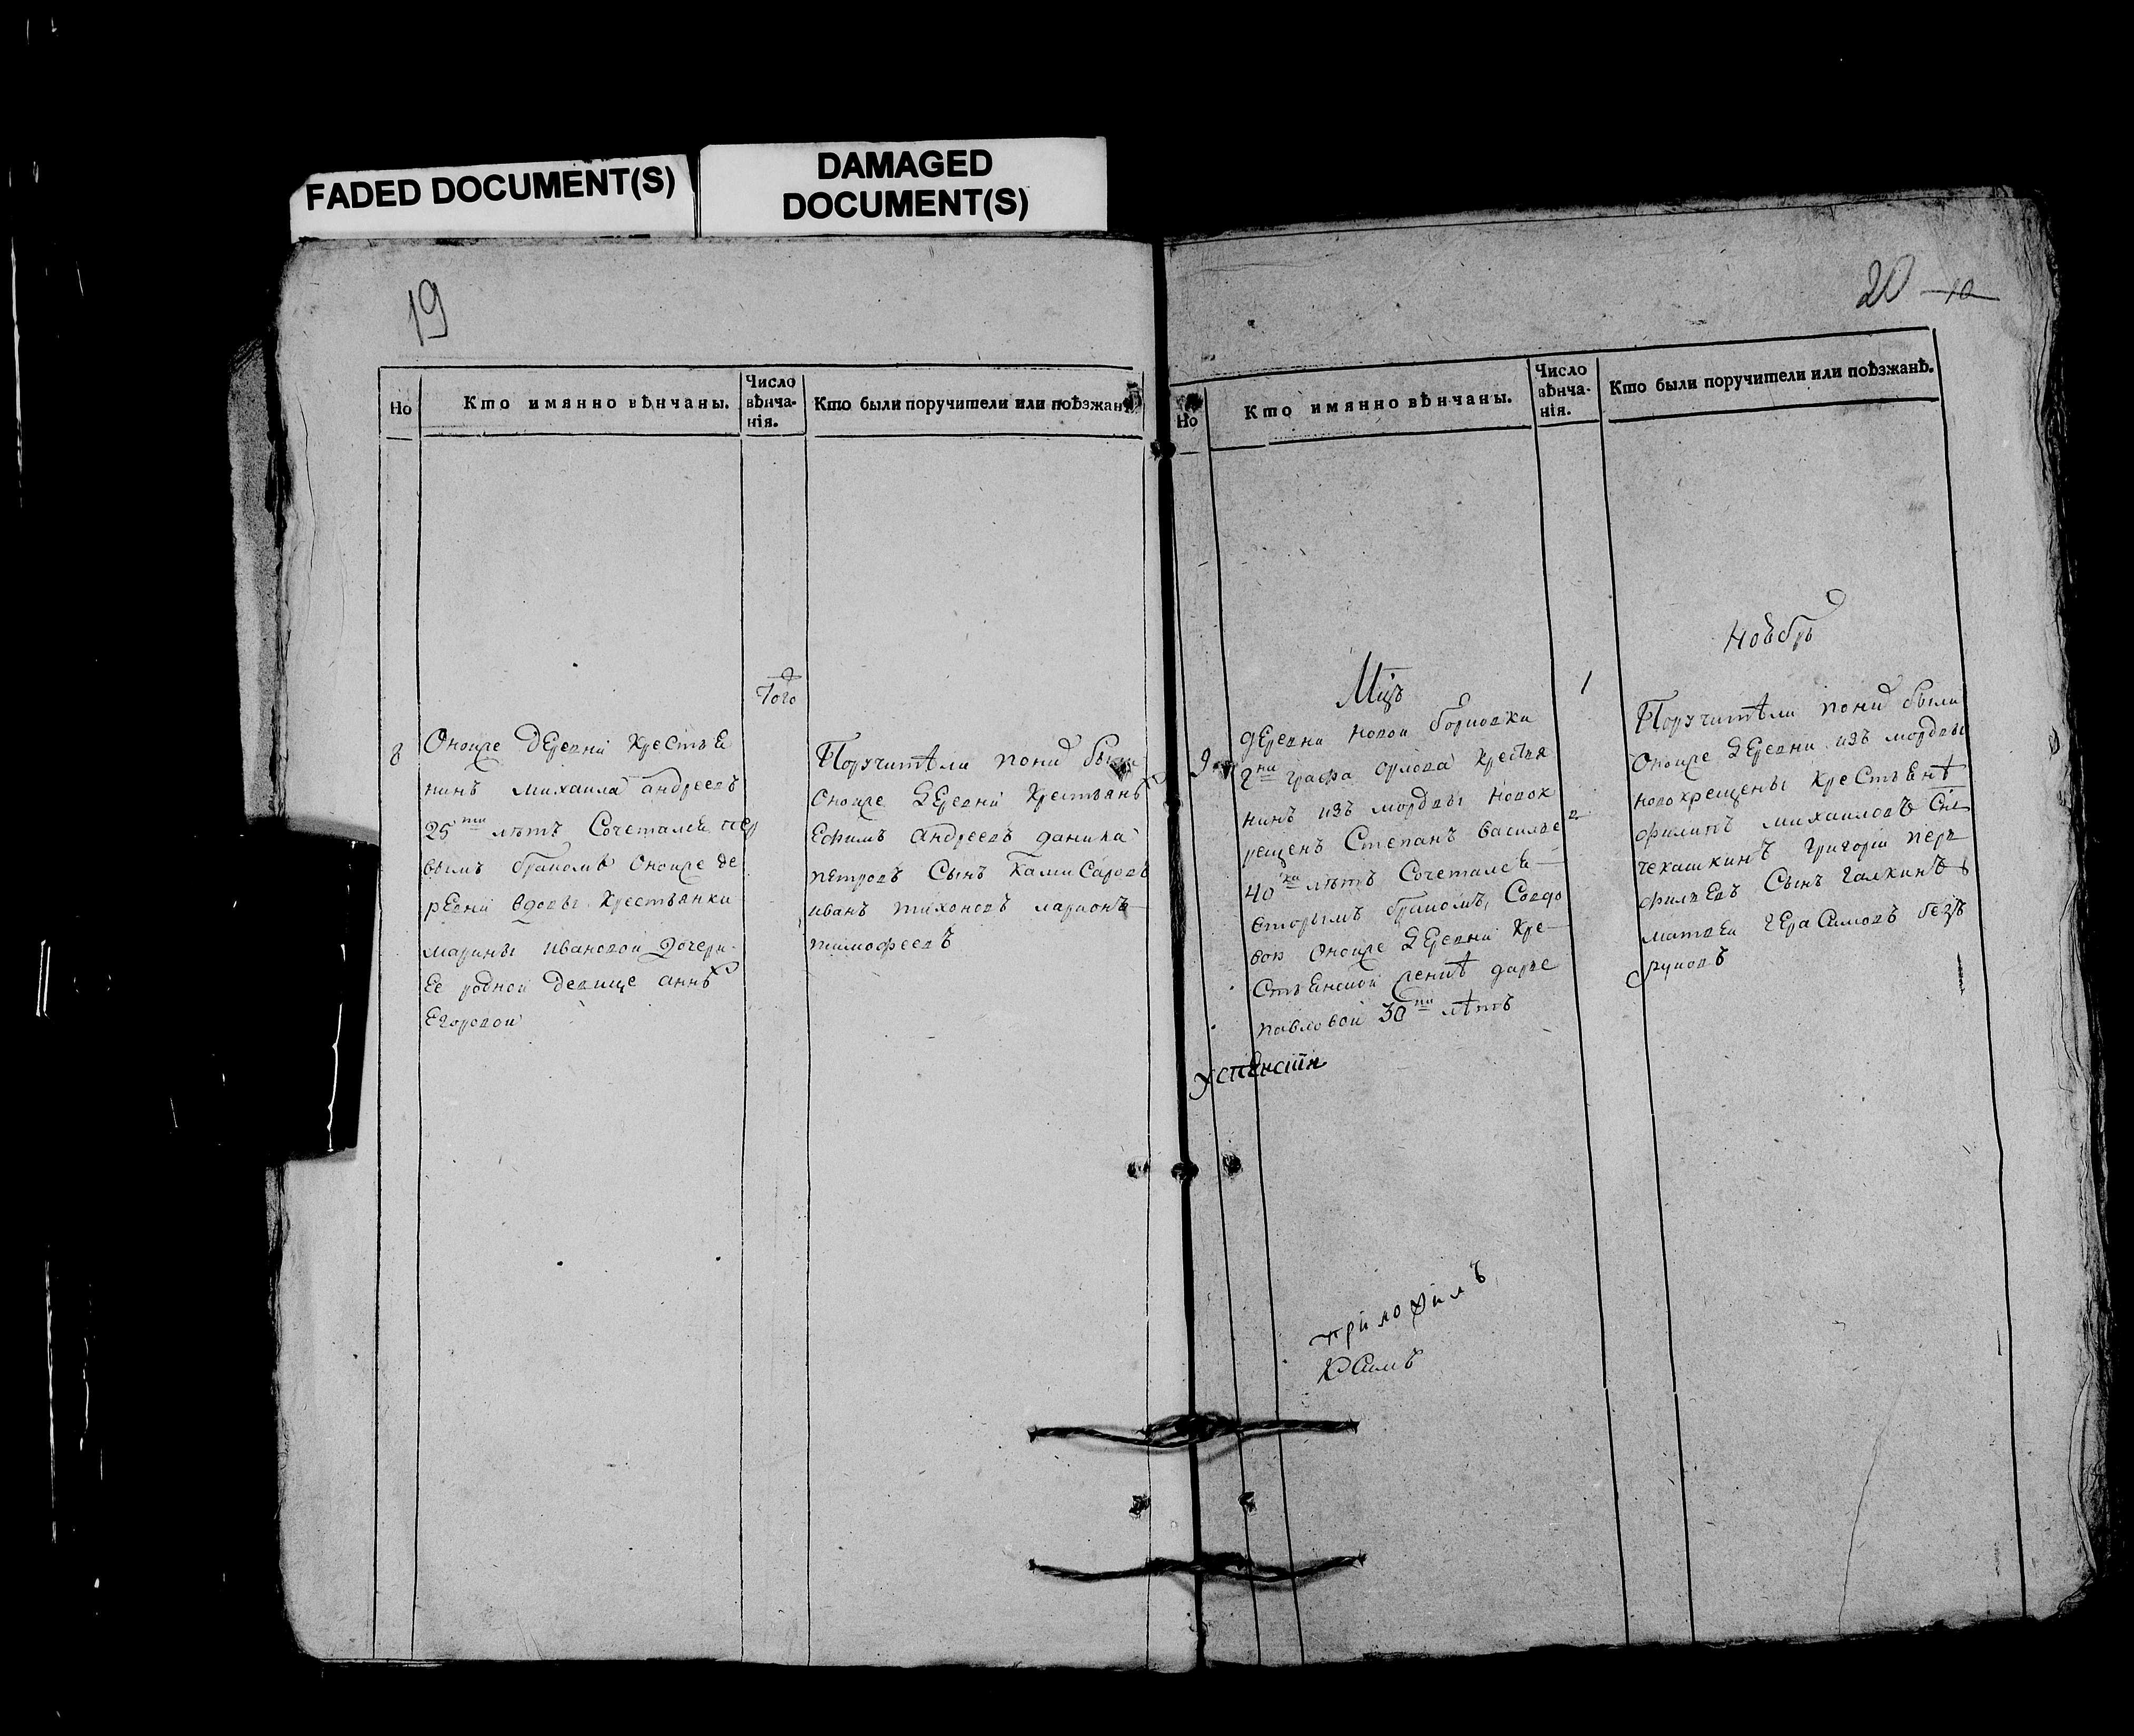 FADED DOCUMENT(S)
DAMAGED
DOCUMENT(S)
19
Но
Кто имянно вѣнчаны.
Число
вѣнча-
нія.
Кто были поручители или поѣзжанѣ.
Того
8
Оноиже деревни крестьѣ
нинъ михаила андреевъ
25 ти лѣтъ Сочетался пер
вымъ бракомъ Оноиже де
ревни вдовы крестьянки
марины ивановой дочери
Ее родной девице аннѣ
Егоровой
Поручители пони были
Оноиже деревни крестьянѣ
Ефимъ андреевъ данила
петровъ Сынъ
иванъ тихоновъ ларионъ
тимофеевъ
20 10
Но
Кто имянно вѣнчаны.
Число
вѣнча-
нія.
Кто были поручители или поѣзжанѣ.
Мцъ
Ноябрь
9
1
деревни новой
графа орлова крестья
нинъ изъ мордвы новок
рещенъ Степанъ васильев
40 ка лѣтъ Сочетался
вторымъ бракомъ, Совдо
вои Оноиже деревни кре
Стьѣнской женѣ дарье
павловой 30 ти лѣтъ
Поручители пони были
Оноиже деревни изъ мордвы
новокрещены крестьѣнѣ
филипъ михаиловъ Сы
чекашкинъ григорій
Сынъ галкинъ
матвеи герасимовъ
приложилъ